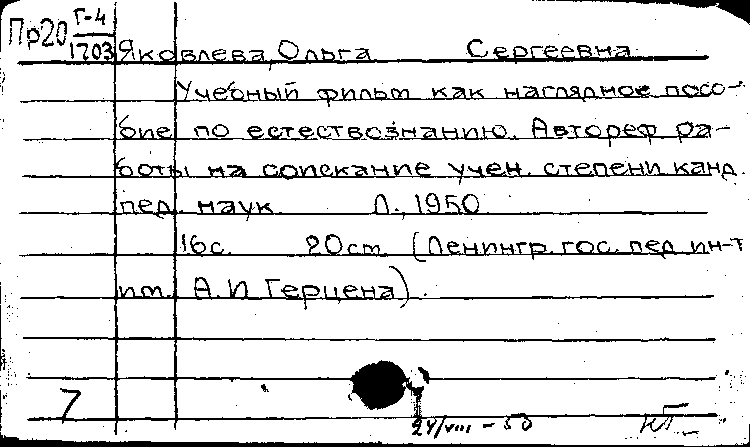 Пр20 Г-4
1703
Яковлева, Ольга Сергеевна
Учебный фильм как наглядное посо-
бие по естествознанию. Автореф. ра-
боты на соискание учен. степени канд.
пед. наук. Л., 1950
16с. 20см. (Ленингр. гос. пед. ин-т
им. А. И. Герцена).
7
24/VIII - 50